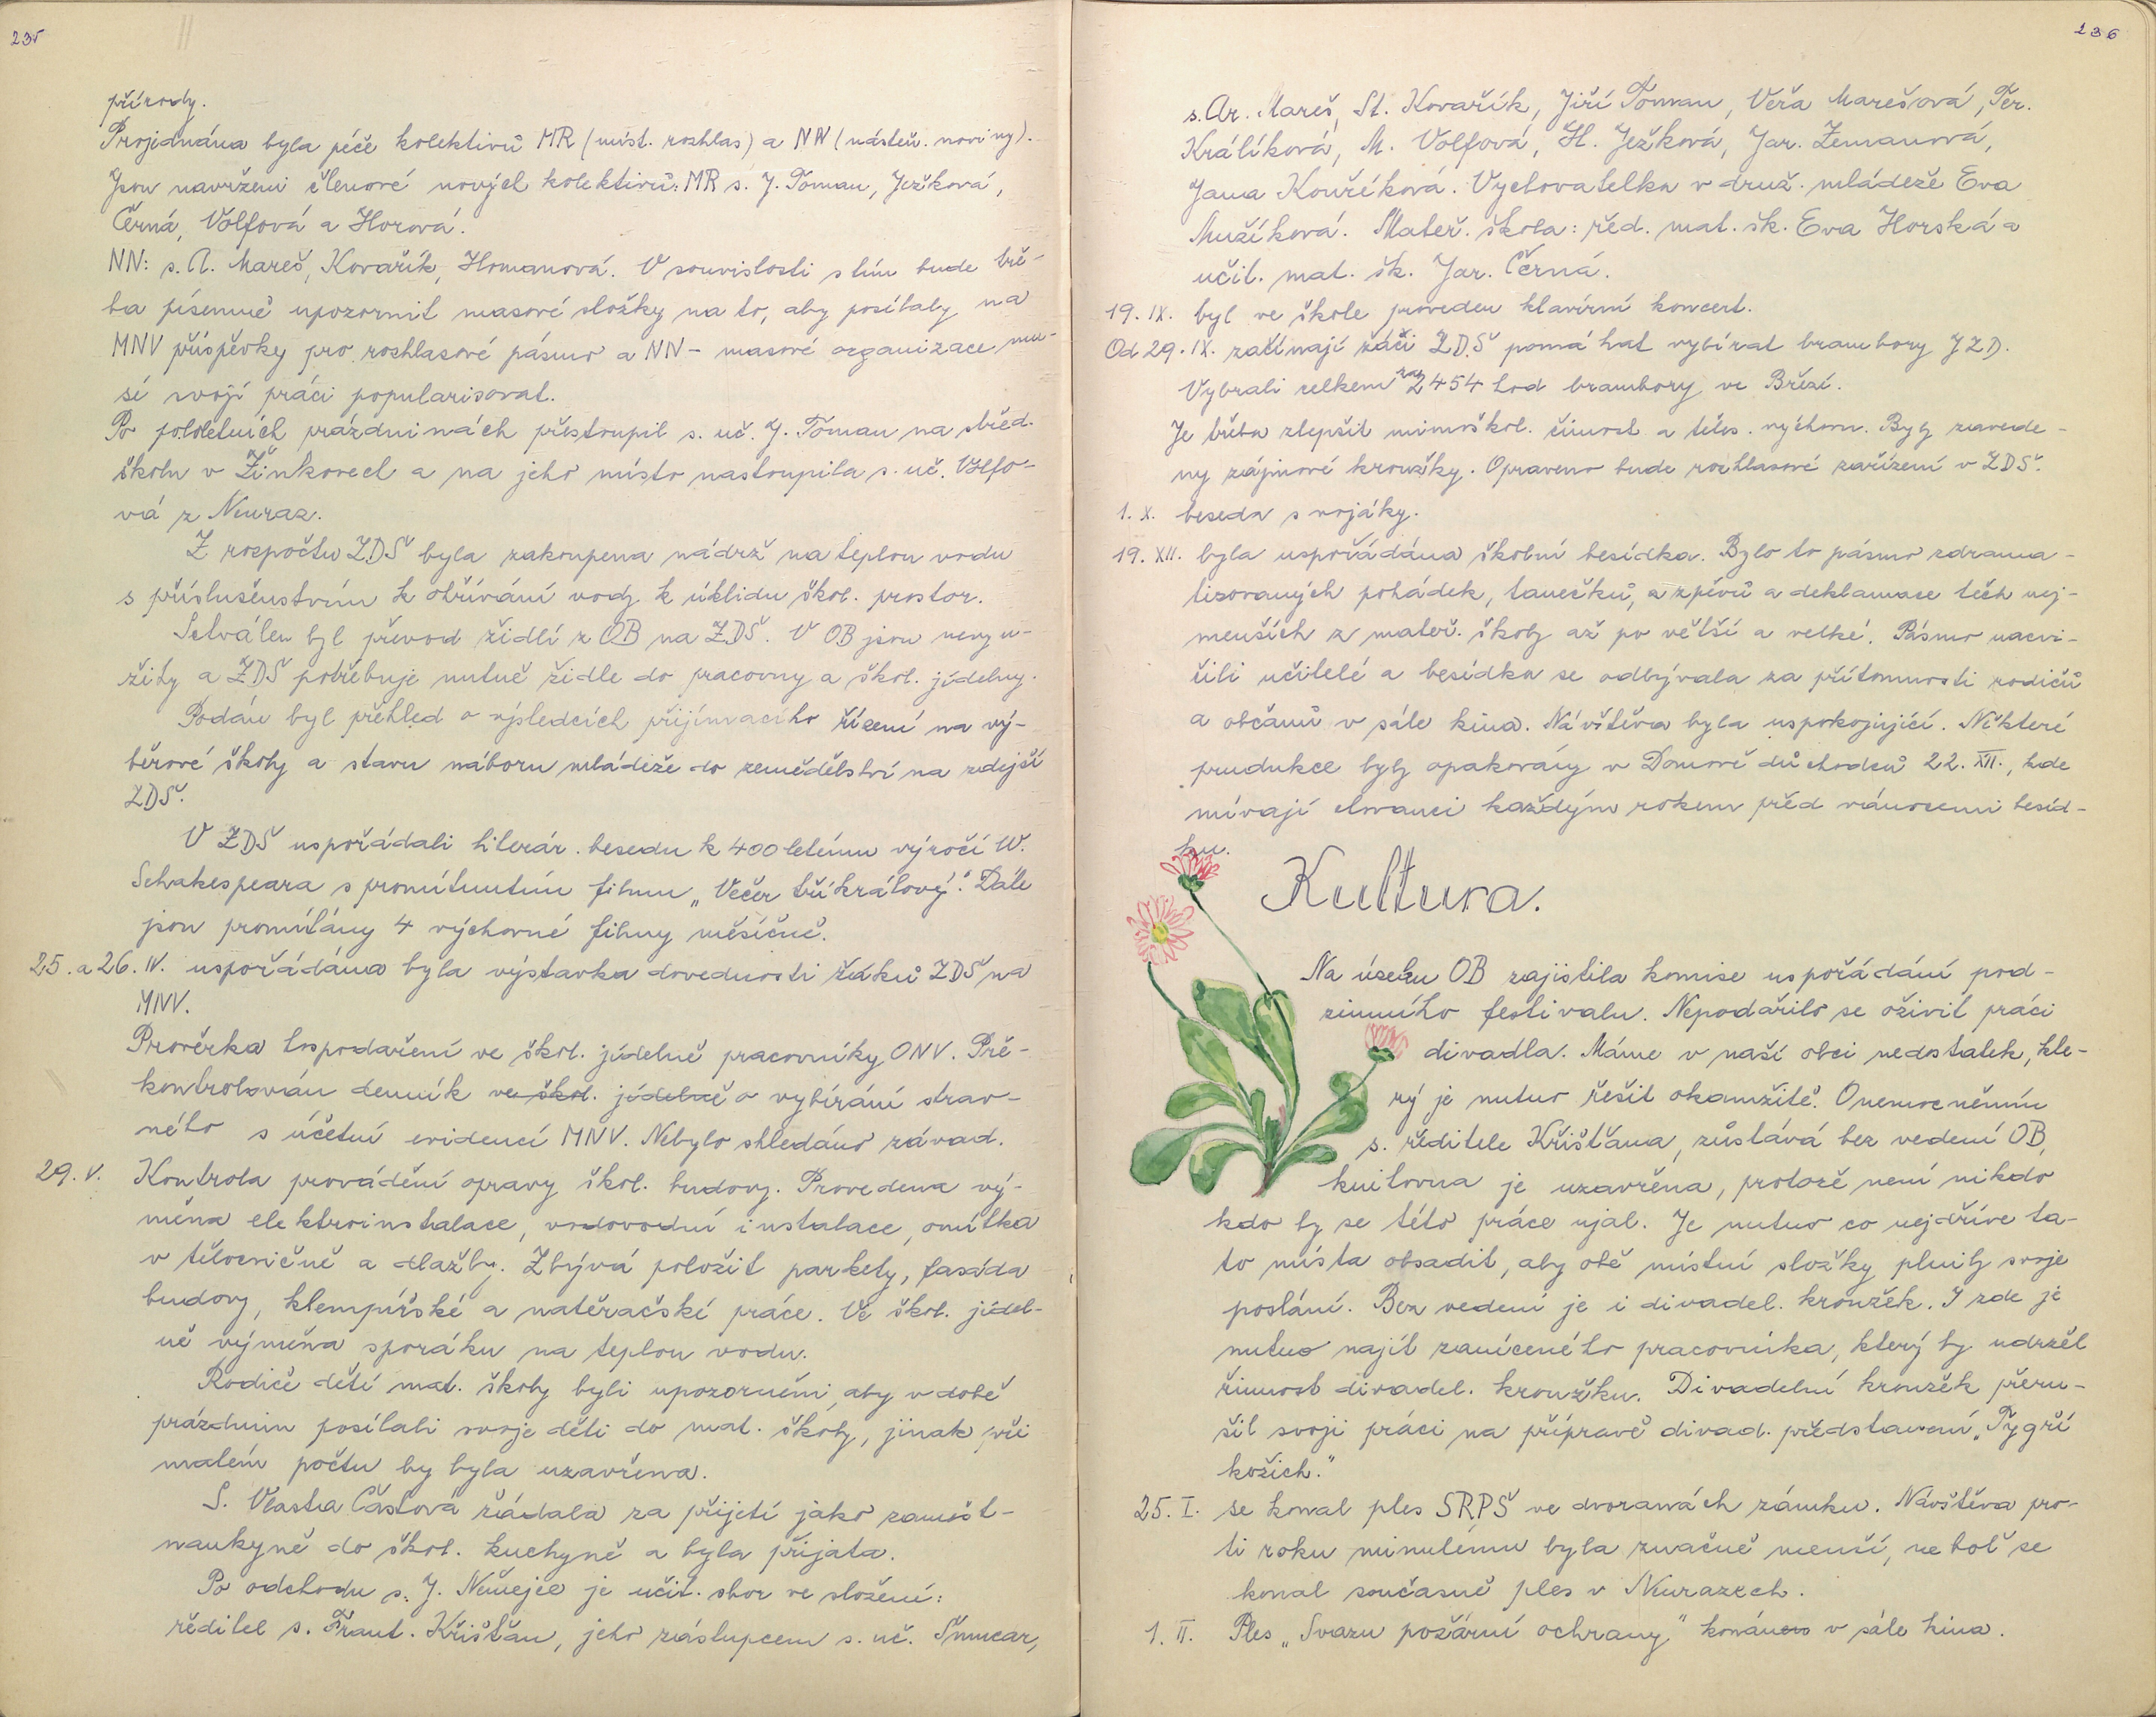 235
přírody.
Projednána byla péče kolektivů MR (míst. rozhlas) a NN (nástěn. noviny).
Jsou navrženi členové nových kolektivů: MR s. J. Toman, Ježková,
Černá, Volfová a Horová.
NN: s. A. Mareš, Kovařík, Homanová. V souvislosti s tím bude tře-
ba písemně upozornit masové složky na to, aby posílaly na
MNV příspěvky pro rozhlasové pásmo a NN - masové organizace mu-
sí svojí práci popularisovat.
Po pololetních prázdninách přestoupil s. uč. J. Toman na střed.
školu v Žinkovech a na jeho místo nastoupila s. uč. Volfo-
vá z Neuraz.
Z rozpočtu ZDŠ byla zakoupena nádrž na teplou vodu
s příslušenstvím k ohřívání vody k úklidu škol. prostor.
Schválen byl převod židlí z OB na ZDŠ. V OB jsou nevyu-
žity a ZDŠ potřebuje nutně židle do pracovny a škol. jídelny.
Podán byl přehled o výsledcích přijímacího řízení na vý-
běrové školy a stavu náboru mládeže do zemědělství na zdejší
ZDŠ.
V ZDŠ uspořádali literár. besedu k 400 letému výročí W.
Schakespeara s promítnutím filmu „Večer tříkrálový". Dále
jsou promítány 4 výchovné filmy měsíčně.
25. a 26. IV. uspořádána byla výstavka dovednosti žáků ZDŠ na
MNV.
Prověrka hospodaření ve škol. jídelně pracovníky ONV. Pře-
kontrolován denník ve škol. jídelně o vybírání strav-
ného s účetní evidencí MNV. Nebylo shledáno závad.
29. V. Kontrola provádění opravy škol. budovy. Provedena vý-
měna elektroinstalace, vodovodní instalace, omítka
v tělocvičně a dlažby. Zbývá položit parkety, fasáda
budovy, klempířské a natěračské práce. Ve škol. jídel-
ně výměna sporáku na teplou vodu.
Rodiče dětí mat. školy byli upozorněni, aby v době
prázdnin posílali svoje děti do mat. školy, jinak při
malém počtu by byla uzavřena.
S. Vlasta Částová žádala za přijetí jako zaměst-
naukyně do škol. kuchyně a byla přijata.
Po odchodu s. J. Neužejce je učit. sbor ve složení:
ředitel s. Frant. Křišťan, jeho zástupcem s. uč. Šmucar,
236
s. Ar. Mareš, St. Kovařík, Jiří Toman, Věra Marešová, Ter.
Králíková, M. Volfová, H. Ježková, Jar. Zemanová,
Jana Kouříková. Vychovatelka v druž. mládeže Eva
Mužíková. Mateř. škola: řed. mat. šk. Eva Horská a
učit. mat. šk. Jar. Černá.
19. IX. byl ve škole proveden klavírní koncert.
Od 29. IX. začínají žáči ZDŠ pomáhat vybírat brambory JZD.
Vybrali celkem za 2454 hod brambory ve Březí.
Je třeba zlepšit mimoškol. činnost a těles. výchovu. Byly zavede-
ny zájmové kroužky. Opraveno bude rozhlasové zařízení v ZDŠ.
1. X. beseda s vojáky.
19. XII. byla uspořádána školní besídka. Bylo to pásmo zdrama-
tizovaných pohádek, tanečků, a zpěvů a deklamace těch nej-
menších z mateř. školy až po větší a velké. Pásmo nacvi-
čili učitelé a besídka se odbývala za přítomnosti rodičů
a občanů v sále kina. Návštěva byla uspokojující. Některé
prudukce byly opakovány v Domově důchodců 22. XII., kde
mívají chovanci každým rokem před vánocemi besíd-
ku.
Kultura.
Na úseku OB zajistila komise uspořádání pod-
zimního festivalu. Nepodařilo se oživit práci
divadla. Máme v naší obci nedostatek, kte-
rý je nutno řešit okamžitě. Onemocněním
s. ředitele Křišťana, zůstává bez vedení OB,
knihovna je uzavřena, protože není nikdo
kdo by se této práce ujal. Je nutno co nejdříve ta-
to místa obsadit, aby obě místní složky plnily svoje
poslání. Bez vedení je i divadel. kroužek. I zde je
nutno najít zaníceného pracovníka, který by udržel
činnost divadel. kroužku. Divadelní kroužek přeru-
šil svoji práci na přípravě divad. představení „Tygří
kožich."
25. I. se konal ples SRPŠ ve dvoranách zámku. Návštěva pro-
ti roku minulému byla značně menší, neboť se
konal současně ples v Neurazech.
1. II. Ples „Svazu požární ochrany" konán v sále kina.